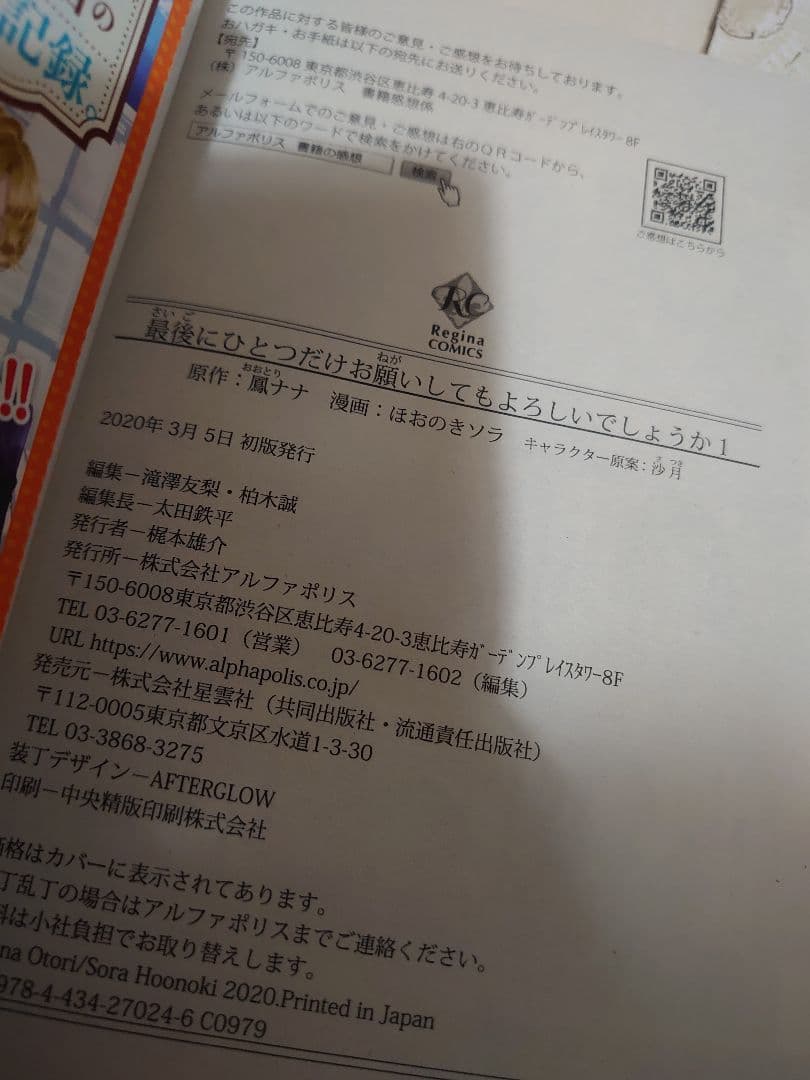 の
記録。
!!
この作品に対する皆様のご意見・ご感想をお待ちしております。
おハガキ・お手紙は以下の宛先にお送りください。
【宛先】
〒150-6008 東京都渋谷区恵比寿 4-20-3 恵比寿ｶﾞｰﾃﾞﾝﾌﾟﾚｲｽﾀﾜｰ 8F
（株）アルファポリス 書籍感想係
メールフォームでのご意見・ご感想は右のQRコードから、
あるいは以下のワードで検索をかけてください。
アルファポリス 書籍の感想 検索
ご感想はこちらから
RC
Regina
COMICS
さいご ねが
最後にひとつだけお願いしてもよろしいでしょうか 1
おおとり さつき
原作：鳳ナナ 漫画：ほおのきソラ キャラクター原案：沙月
2020年 3月 5日 初版発行
編集－滝澤友梨・柏木誠
編集長－太田鉄平
発行者－梶本雄介
発行所－株式会社アルファポリス
〒150-6008東京都渋谷区恵比寿4-20-3恵比寿ｶﾞｰﾃﾞﾝﾌﾟﾚｲｽﾀﾜｰ8F
TEL 03-6277-1601（営業） 03-6277-1602（編集）
URL https://www.alphapolis.co.jp/
発売元－株式会社星雲社（共同出版社・流通責任出版社）
〒112-0005東京都文京区水道1-3-30
TEL 03-3868-3275
装丁デザイン－AFTERGLOW
印刷－中央精版印刷株式会社
価格はカバーに表示されてあります。
丁乱丁の場合はアルファポリスまでご連絡ください。
料は小社負担でお取り替えします。
na Otori/Sora Hoonoki 2020.Printed in Japan
978-4-434-27024-6 C0979